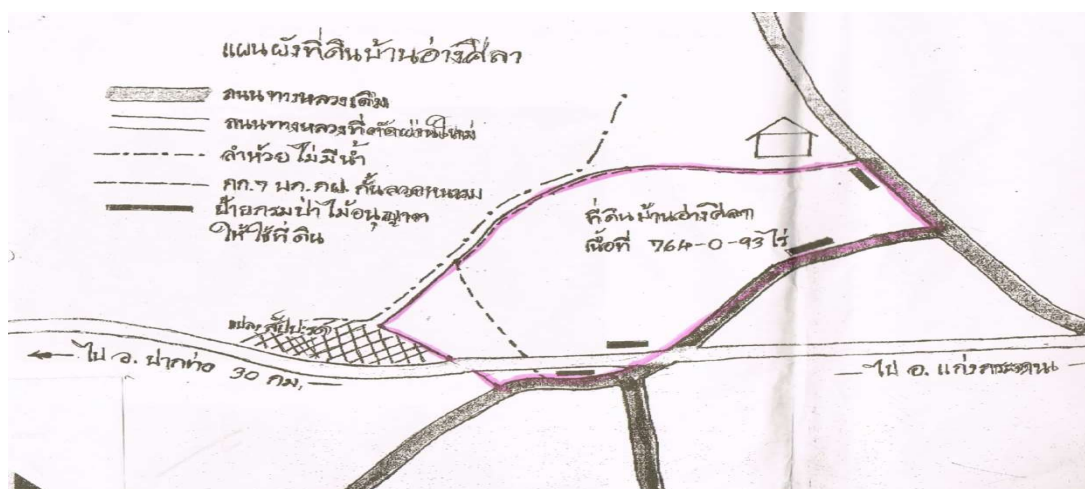 แผนผังที่ดินบ้านอ่างศิลา
ถนนทางหลวงเดิม
ถนนทางหลวงที่ตัดผ่านใหม่
ลำห้วยไม่มีน้ำ
กก.๗ บก.กฝ. กั้นลวดหนาม
ป้ายกรมป่าไม้อนุญาต
ให้ใช้ที่ดิน
ที่ดินบ้านอ่างศิลา
เนื้อที่ 764-0-93 ไร่
แปลงสับปะรด
ไป อ. ปากท่อ 30 กม.
ไป อ. แก่งกระจาน